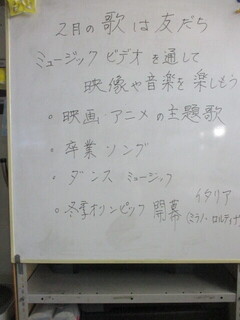 2月の歌は友だち
ミュージックビデオを通して
映像や音楽を楽しもう
・映画 アニメの主題歌
・卒業ソング
・ダンス ミュージック
・冬季オリンピック開幕
イタリア
(ミラノ・コルティナ)